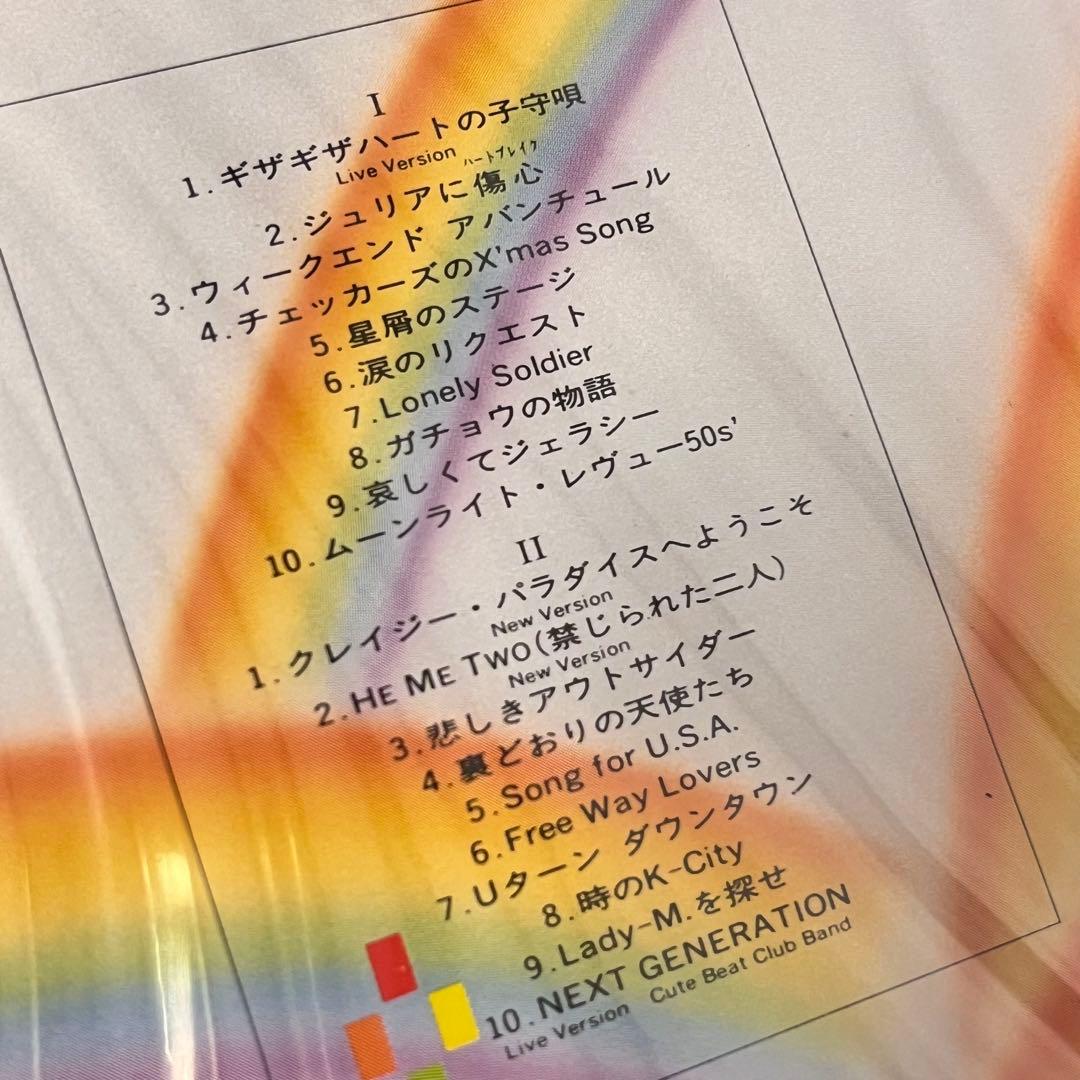 I
1.ギザギザハートの子守唄
Live Version
ハートブレイク
2.ジュリアに傷心
3.ウィークエンド アバンチュール
4.チェッカーズのX'mas Song
5.星屑のステージ
6.涙のリクエスト
7.Lonely Soldier
8.ガチョウの物語
9.哀しくてジェラシー
10.ムーンライト・レヴュー50s'
II
1.クレイジー・パラダイスへようこそ
New Version
2.HE ME TWO(禁じられた二人)
New Version
3.悲しきアウトサイダー
4.裏どおりの天使たち
5.Song for U.S.A.
6.Free Way Lovers
7.Uターン ダウンタウン
8.時のK-City
9.Lady-M.を探せ
10.NEXT GENERATION
Live Version Cute Beat Club Band